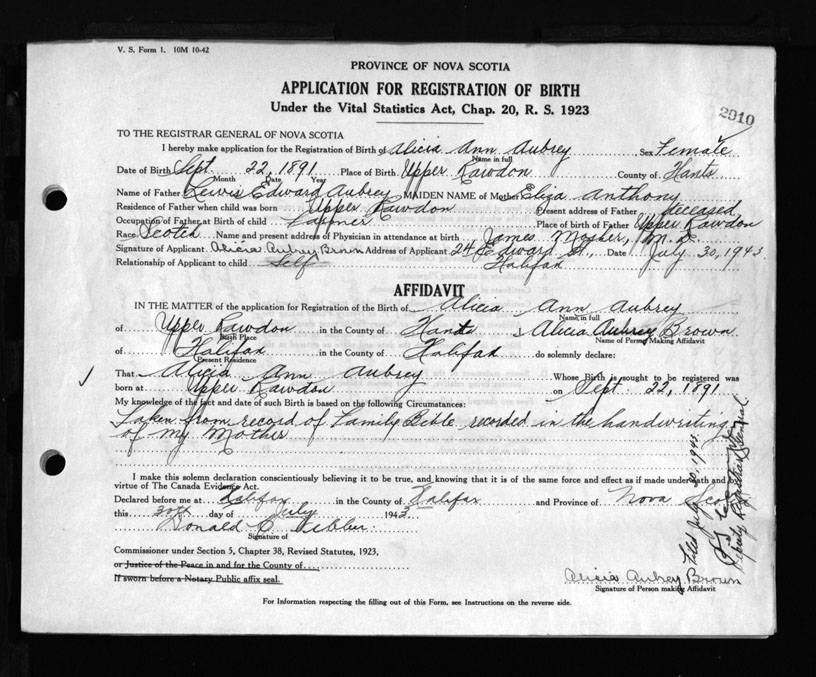 V. S. Form 1. 10M 10-42
PROVINCE OF NOVA SCOTIA
APPLICATION FOR REGISTRATION OF BIRTH
Under the Vital Statistics Act, Chap. 20, R. S. 1923
2910
TO THE REGISTRAR GENERAL OF NOVA SCOTIA
I hereby make application for the Registration of Birth of Alicia Ann Aubrey Sex Female
Name in full
Date of Birth Sept. 22, 1891 Place of Birth Upper Rawdon County of Hants
Month Date Year
Name of Father Lewis Edward Aubrey MAIDEN NAME of Mother Eliza Anthony
Residence of Father when child was born Upper Rawdon Present address of Father deceased
Occupation of Father at Birth of child Place of birth of Father Upper Rawdon
Race Scotch Name and present address of Physician in attendance at birth James Mosher, M.D.
Signature of Applicant Alicia Aubrey Brown Address of Applicant 24 Edward St., Date July 30, 1943
Relationship of Applicant to child Self Halifax
AFFIDAVIT
IN THE MATTER of the application for Registration of the Birth of Alicia Ann Aubrey
Name in full
of Upper Rawdon in the County of Hants I, Alicia Aubrey Brown
Birth Place Name of Person Making Affidavit
of Halifax in the County of Halifax do solemnly declare:
Present Residence
That Alicia Ann Aubrey Whose Birth is sought to be registered was
born at Upper Rawdon on Sept 22, 1891
My knowledge of the fact and date of such Birth is based on the following Circumstances:
Taken from record of Family Bible recorded in the handwriting
of my Mother
I make this solemn declaration conscientiously believing it to be true, and knowing that it is of the same force and effect as if made under oath and by
virtue of The Canada Evidence Act.
Declared before me at Halifax in the County of Halifax and Province of Nova Scotia
this 30th day of July 1943
Donald C.
Signature of
Commissioner under Section 5, Chapter 38, Revised Statutes, 1923,
or Justice of the Peace in and for the County of
If sworn before a Notary Public affix seal.
Alicia Aubrey Brown
Signature of Person making Affidavit
For Information respecting the filling out of this Form, see Instructions on the reverse side.
Filed July 30, 1943.
Deputy Registrar General